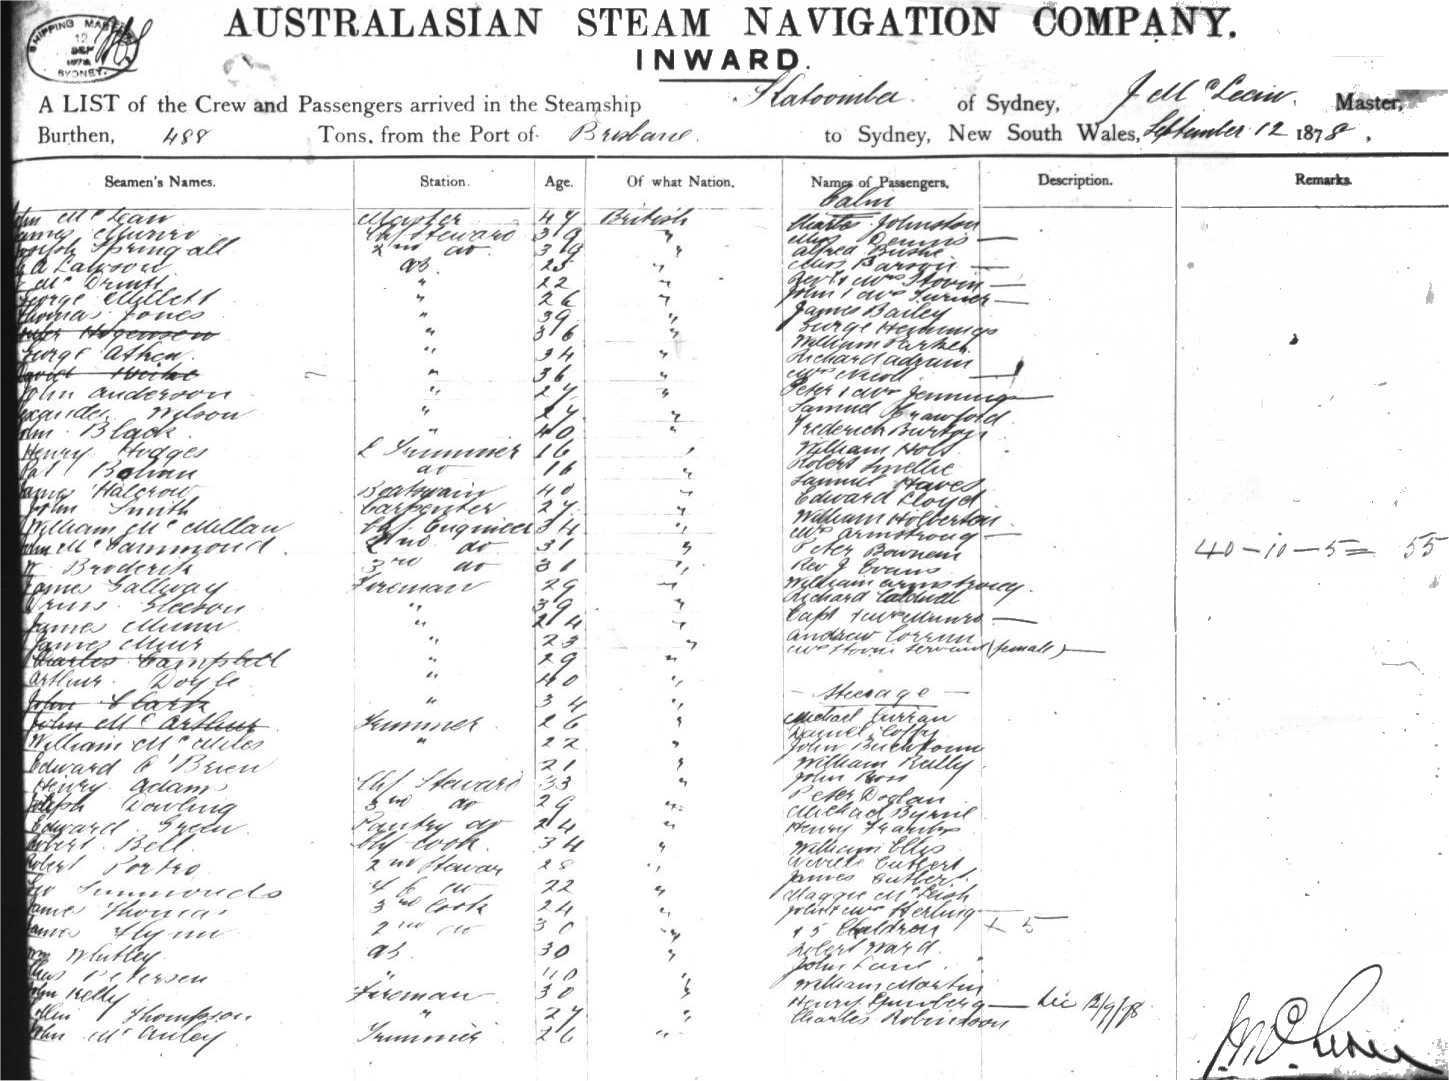 SHIPPING MASTER
12
SEP
1878
SYDNEY.
AUSTRALASIAN STEAM NAVIGATION COMPANY.
INWARD.
A LIST of the Crew and Passengers arrived in the Steamship Katoomba of Sydney, J McLean. Master,
Burthen, 488 Tons, from the Port of Brisbane. to Sydney, New South Wales, September 12 1878,
Seamen's Names. Station. Age. Of what Nation. Names of Passengers. Description. Remarks.
Cabin
John McLean Master 47 British Johnston
James Munro Chf Steward 39 " Miss Dennis —
Joseph Springall 2nd do 39 " Alfred
Lawson AB 25 " Miss —
22 " Revd & Mrs Stovin —
George Millett " 26 " John & Mrs Turner —
Thomas Jones " 39 " James Bailey
" 36 " George Hemmings
George " 34 " William Parker
" 36 " Richard
Mrs —
John Anderson " 27 " Peter & Mrs Jennings —
Alexander Wilson " 27 " Samuel Crawford
John Black " 40 " Frederick Burton
Henry Hodges Trimmer 16 " William Holt
Pat do 16 " Robert Smellie
James Halcrow Boatswain 40 " Samuel Hawes
John Smith Carpenter 27 " Edward Lloyd
William McMillan Chf Engineer 34 " William Holberton
John McCammond 2nd do 31 " Mrs Armstrong —
Broderick 3rd do 31 " Peter
Rev J Evans
James Gallway Fireman 29 " William Armstrong
Gleeson " 39 " Richard Caldwell
James Munn " 24 " Capt & Mrs Munro —
James Muir " 23 " Andrew
Charles Campbell " 29 " Mrs Stovin Servant (female) —
Arthur Doyle " 40 "
John Clark " 34 " — Steerage —
John McArthur Trimmer 26 " Michael Curran
William McMiles " 22 " Daniel Coffy
John
Edward O'Brien 21 " William Reilly
Henry Adams Chf Steward 33 " John Ross
Joseph Dowling 3rd do 29 " Peter
Edward Green Pantry do 24 " Michael Byrne
Robert Bell Chf Cook 34 " Henry Franks
William Ellis
Robert Porter 2nd Steward 28 " Cuthert
Geo Simmonds do 22 " James
James Thomas 3rd Cook 24 " Maggie McLeish
James Flynn 2nd do 30 " John & Mrs Herling —
+ 5 Children × 5
Wm Whitley AB 30 " Robert Ward
Petersen " 40 " John Lane
John Kelly Fireman 30 " William Martin
Thompson " 27 " Henry — Lic 12/9/78
John McAuley Trimmer 26 " Charles Robinson
40 – 10 – 5 = 55
J. McLean